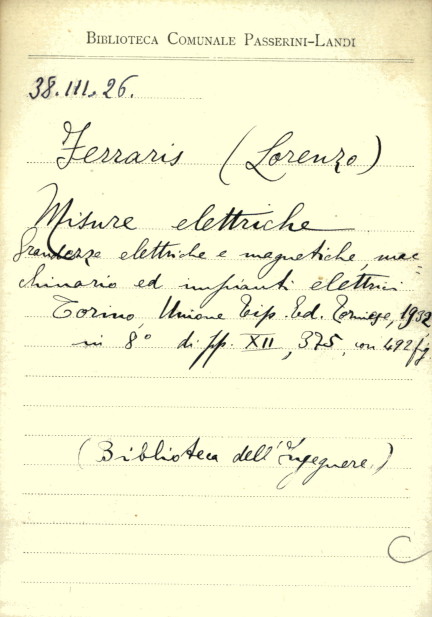 BIBLIOTECA COMUNALE PASSERINI-LANDI
38.III.26.
Ferraris (Lorenzo)
Misure elettriche
Grandezze elettriche e magnetiche, mac=
chinario ed impianti elettrici
Torino, Unione Tip. Ed. Torinese, 1932
in 8° di pp. XII, 375, con 492 fig
(Biblioteca dell'Ingegnere)
C